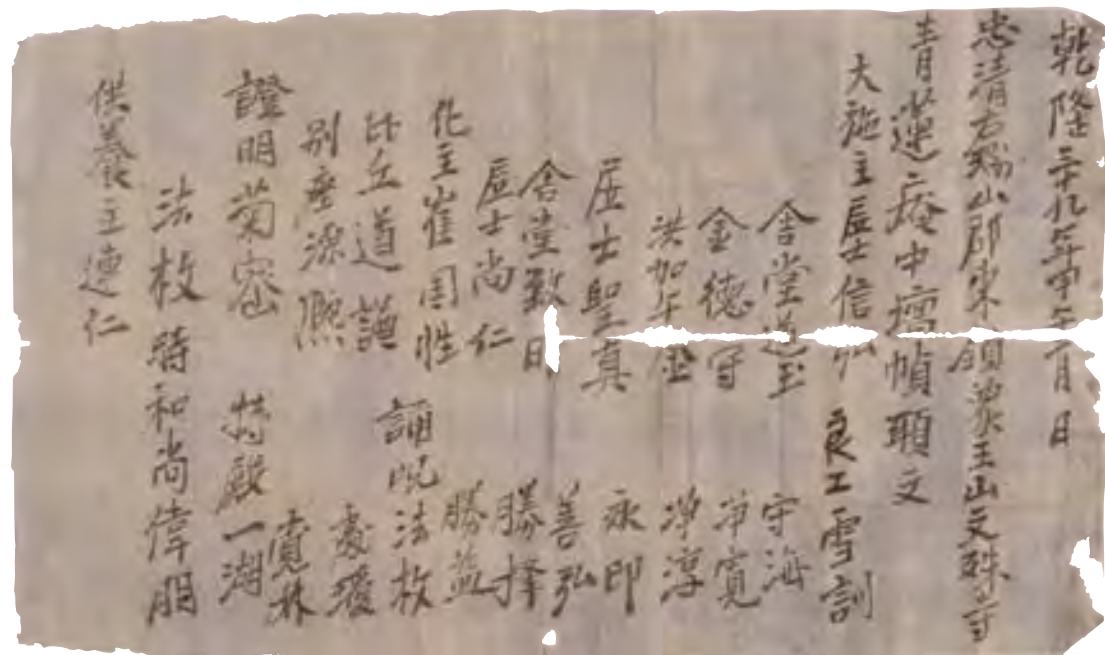 乾隆三十九年甲午二月日
忠清右瑞山郡東領象王山文殊寺
青蓮庵中壇幀願文
大施主居士信弘 良工雪訓
舍堂道玉 守海
金德守 淨寬
洪加午金 淨淳
居士聖真 永印
舍堂致日 善弘
居士尚仁 勝擇
化主崔固性 勝益
比丘道謙 誦呪法枚
別座源熈 處瓊
證明菊密 持殿一湖 覺林
法枚 時和尚偉朋
供養主連仁